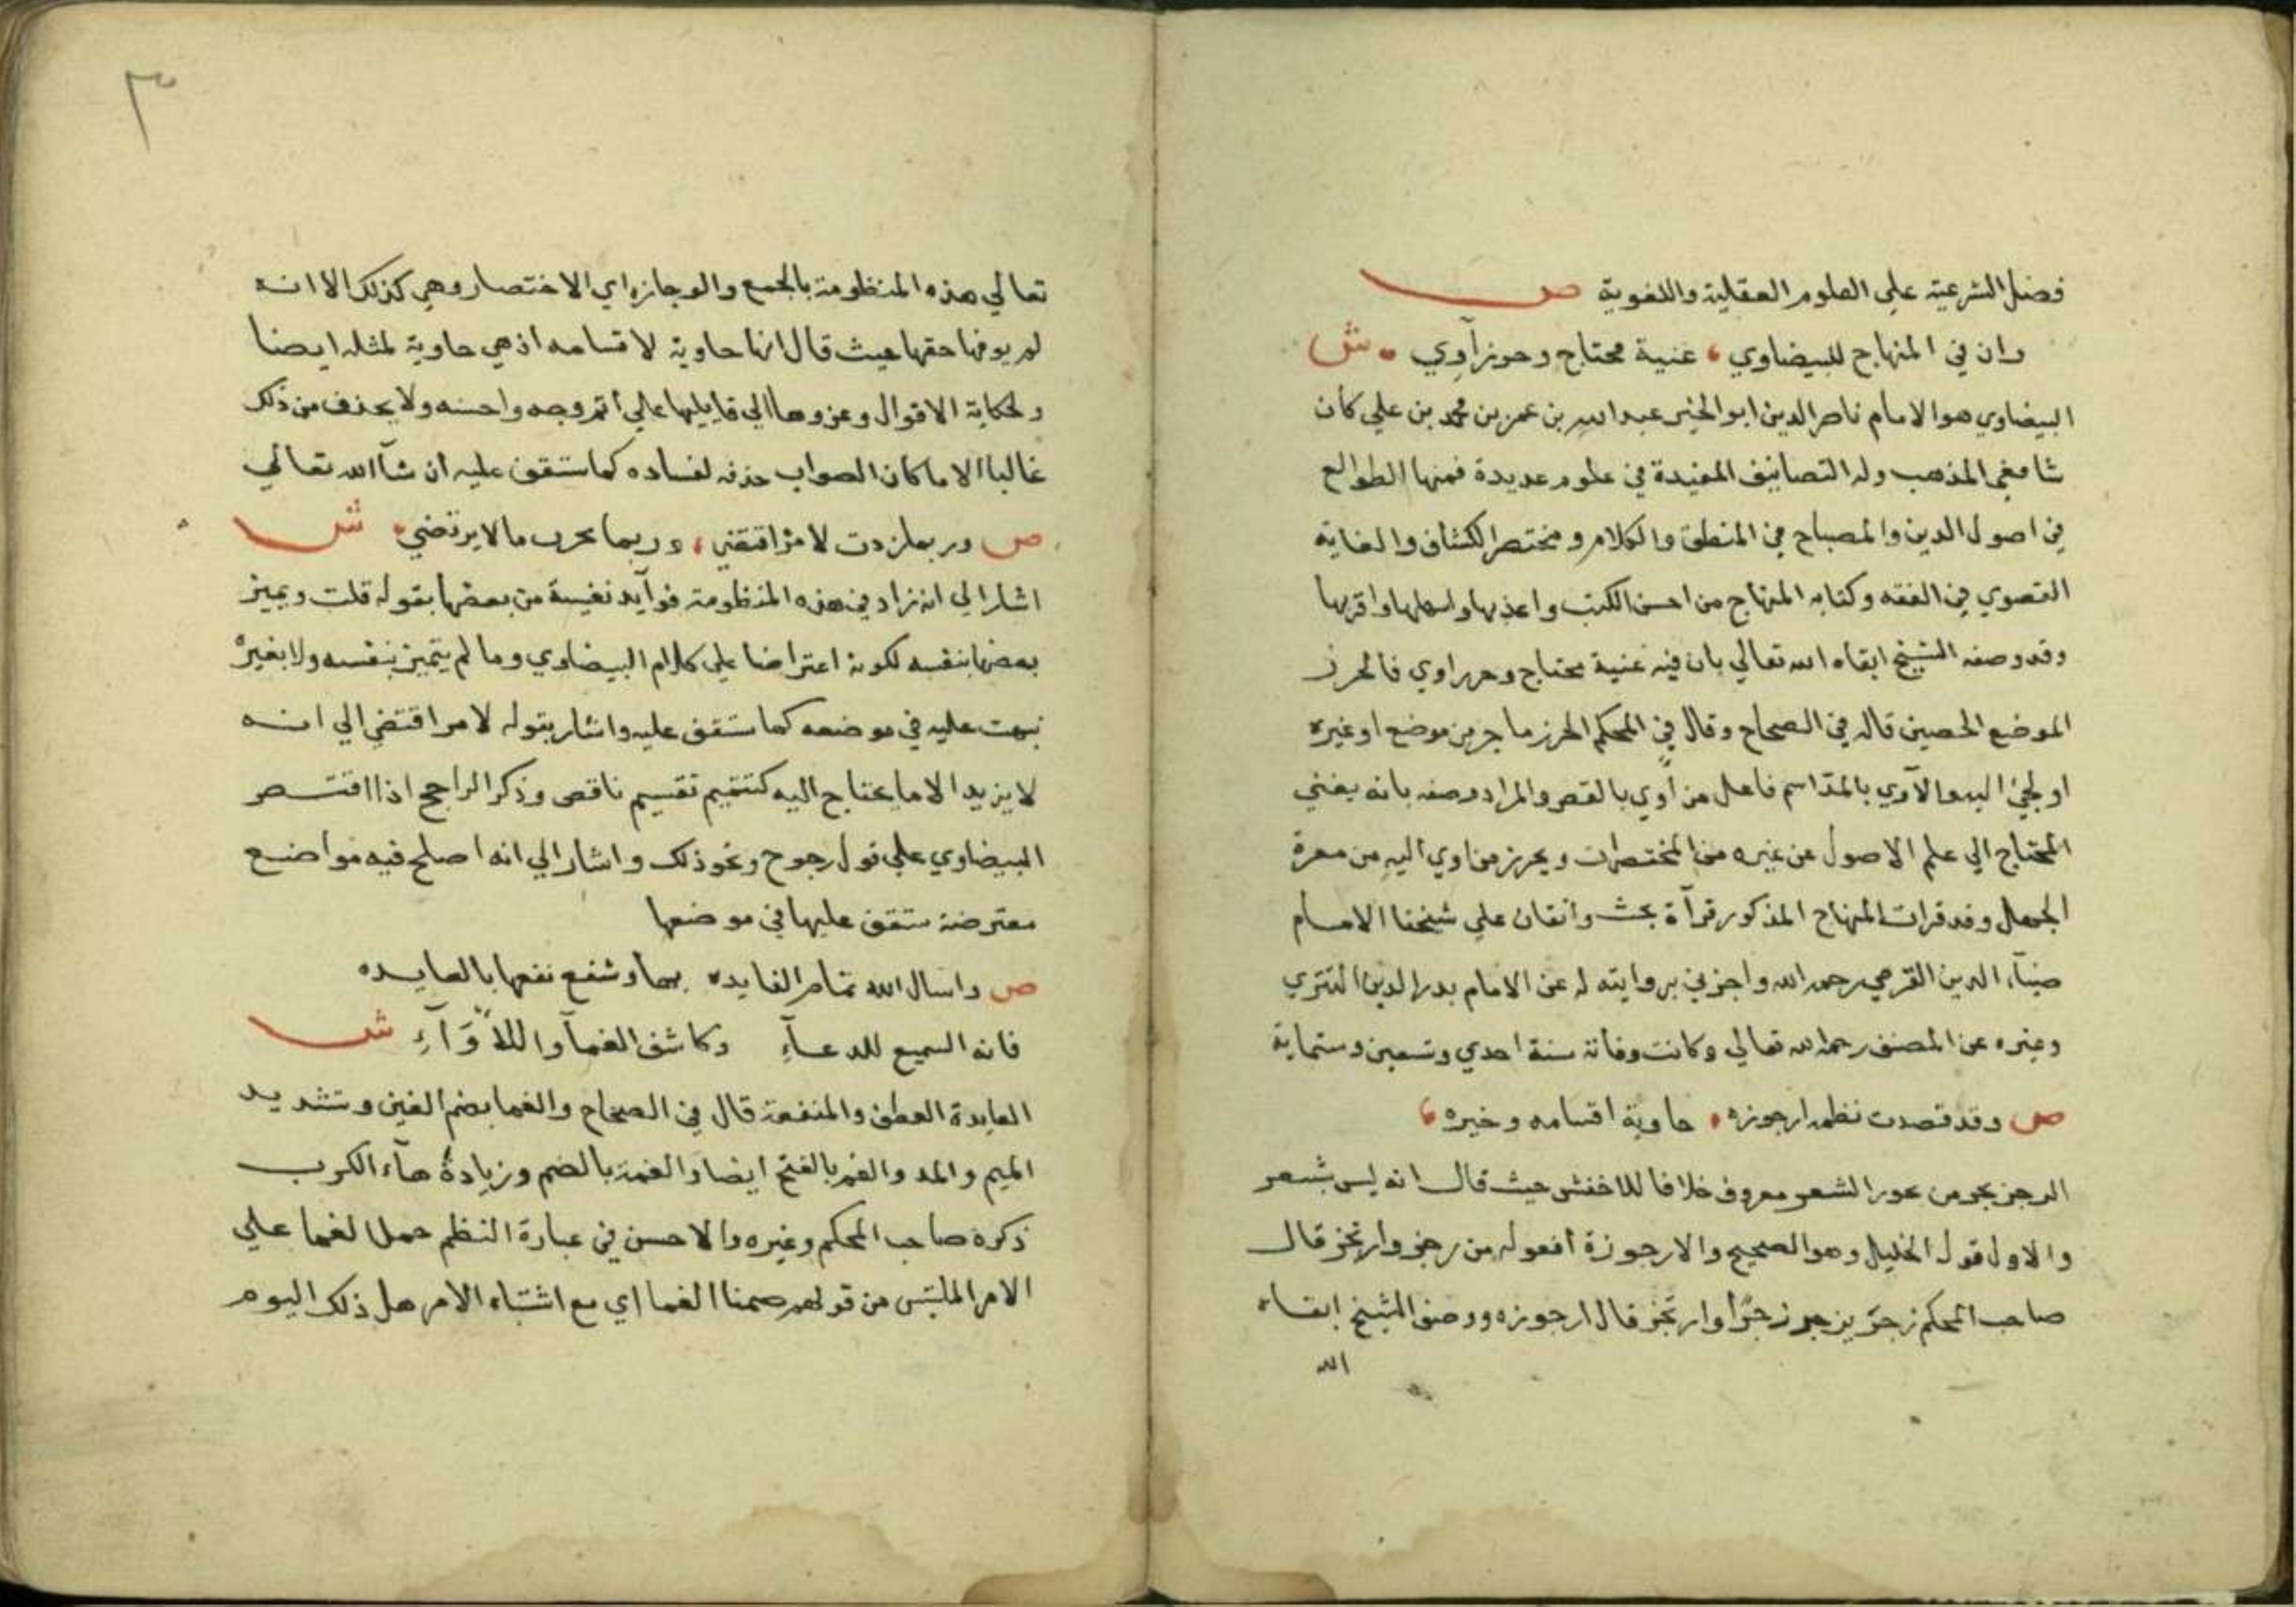 فضل الشرعية على العلوم العقلية واللغوية ص
وان في المنهاج للبيضاوي غنية محتاج وحرز آوي ش
البيضاوي هو الامام ناصر الدين ابو الخير عبد الله بن عمر بن محمد بن علي كان
شافعي المذهب وله التصانيف المفيدة في علوم عديدة فمنها الطوالع
في اصول الدين والمصباح في المنطق والكلام ومختصر الكشاف والغاية
القصوي في الفقه وكتابه المنهاج من احسن الكتب واعذبها واسهلها واقربها
وقد وصفه الشيخ ابقاه الله تعالي بان فيه غنية محتاج وحرز اوي فالحرز
الموضع الحصين قاله في الصحاح وقال في المحكم الحرز ما حرز من موضع او غيره
او لجئ اليه والآوي بالمد اسم فاعل من أوي بالقصر والمراد وصفه بانه يغني
المحتاج الي علم الاصول عن غيره من المختصرات ويحرز من اوي اليه من معرة
الجهل وقد قرات المنهاج المذكور قرآة بحث واتقان علي شيخنا الامام
ضيآء الدين القرمي رحمه الله واجزني بروايته له عن الامام بدر الدين التتري
وغيره عن المصنف رحمه الله تعالي وكانت وفاته سنة احدي وتسعين وستماية
ص وقد قصدت نظمه ارجوزه حاوية اقسامه وخيره
الرجز بحر من بحور الشعر معروف خلافا للاخفش حيث قال انه ليس بشعر
والاول قول الخليل وهو الصحيح والارجوزة افعوله من رجز وارتجز قال
صاحب المحكم رجز يرجز رجزا وارتجز قال ارجوزه ووصف الشيخ ابقاه
الله
٣
تعالي هذه المنظومة بالجمع والوجازه اي الاختصار وهي كذلك الا انه
لم يوفها حقها حيث قال انها حاوية لاقسامه اذ هي حاوية لمثله ايضا
ولحكاية الاقوال وعزوها الي قايليها علي أتم وجه واحسنه ولا يحذف من ذلك
غالبا الا ما كان الصواب حذفه لفساده كما ستقف عليه ان شآ الله تعالي
ص وربما زدت لامر اقتضي وربما بحرت ما لا يرتضي ش
اشار الي انه زاد في هذه المنظومة فوآيد نفيسة من بعضها بقوله قلت ويميز
بعضها بنفسه لكونه اعتراضا علي كلام البيضاوي وما لم يتميز بنفسه ولا بغيره
نبهت عليه في موضعه كما ستقف عليه واشار بقوله لامر اقتضي الي انه
لا يزيد الا ما يحتاج اليه كتتميم تقسيم ناقص وذكر الراجح اذا اقتصر
البيضاوي علي قول مرجوح ونحو ذلك واشار الي انه اصلح فيه مواضع
معترضة ستقف عليها في موضعها
ص واسال الله تمام الفايده بها وشفع نفعها بالعايده
فانه السميع للدعآءِ وكاشف الغمآ واللأْوَآءِ ش
العايدة العطف والمنفعة قال في الصحاح والغما بضم الغين وتشديد
الميم والمد والغم بالفتح ايضا والغمة بالضم وزيادة هآء الكرب
ذكره صاحب المحكم وغيره والاحسن في عبارة النظم حمل الغما علي
الامر الملتبس من قولهم صمنا الغما اي مع اشتباه الامر هل ذلك اليوم